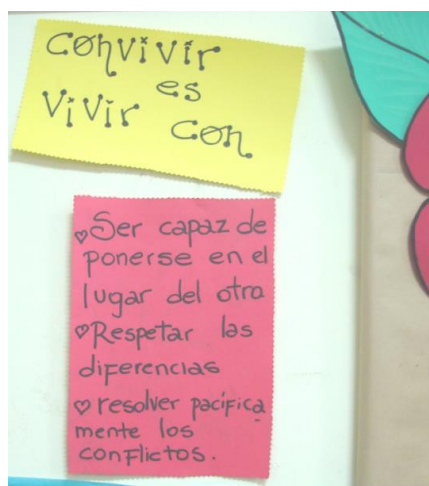 convivir
es
vivir con
Ser capaz de
ponerse en el
lugar del otro
Respetar las
diferencias
resolver pacífica
mente los
conflictos.